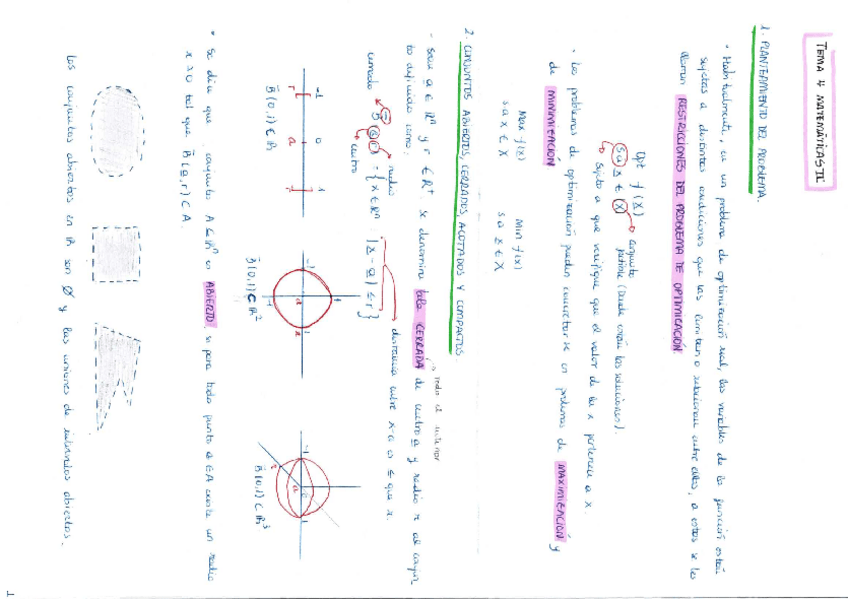 TEMA 4 MATEMÁTICAS II
1. PLANTEAMIENTO DEL PROBLEMA.
• Habitualmente, en un problema de optimización real, las variables de la función están
sujetas a distintas condiciones que las limitan o relacionan entre ellas, a estas se les
llaman RESTRICCIONES DEL PROBLEMA DE OPTIMICACIÓN.
Opt f(x)
s.a x ∈ X
conjunto
factible (Donde están las soluciones).
sujeto a que verifique que el valor de la x pertenece a X.
• Los problemas de optimización pueden concretarse en problemas de MAXIMIZACIÓN y
de MINIMIZACIÓN
Max f(x)
s a x ∈ X
Min f(x)
s a x ∈ X
2. CONJUNTOS ABIERTOS, CERRADOS, ACOTADOS Y COMPACTOS.
→ radio el interior
- Sean a ∈ ℝⁿ y r ∈ ℝ⁺ se denomina bola CERRADA de centro a y radio r al conjun
to definido como:
cerrado B̄(a,r) = { x ∈ ℝⁿ / |x - a| ≤ r }
radio
centro
distancia entre x-a es ≤ que r.
-1 0 1
r a
B̄(0,1) ⊂ ℝ
B̄(0,1) ⊂ ℝ²
B̄(0,1) ⊂ ℝ³
• Se dice que conjunto A ⊆ ℝⁿ es ABIERTO, si para todo punto a ∈ A existe un radio
r > 0 tal que B̄(a,r) ⊂ A.
Los conjuntos abiertos en ℝ son Ø y las uniones de intervalos abiertos.